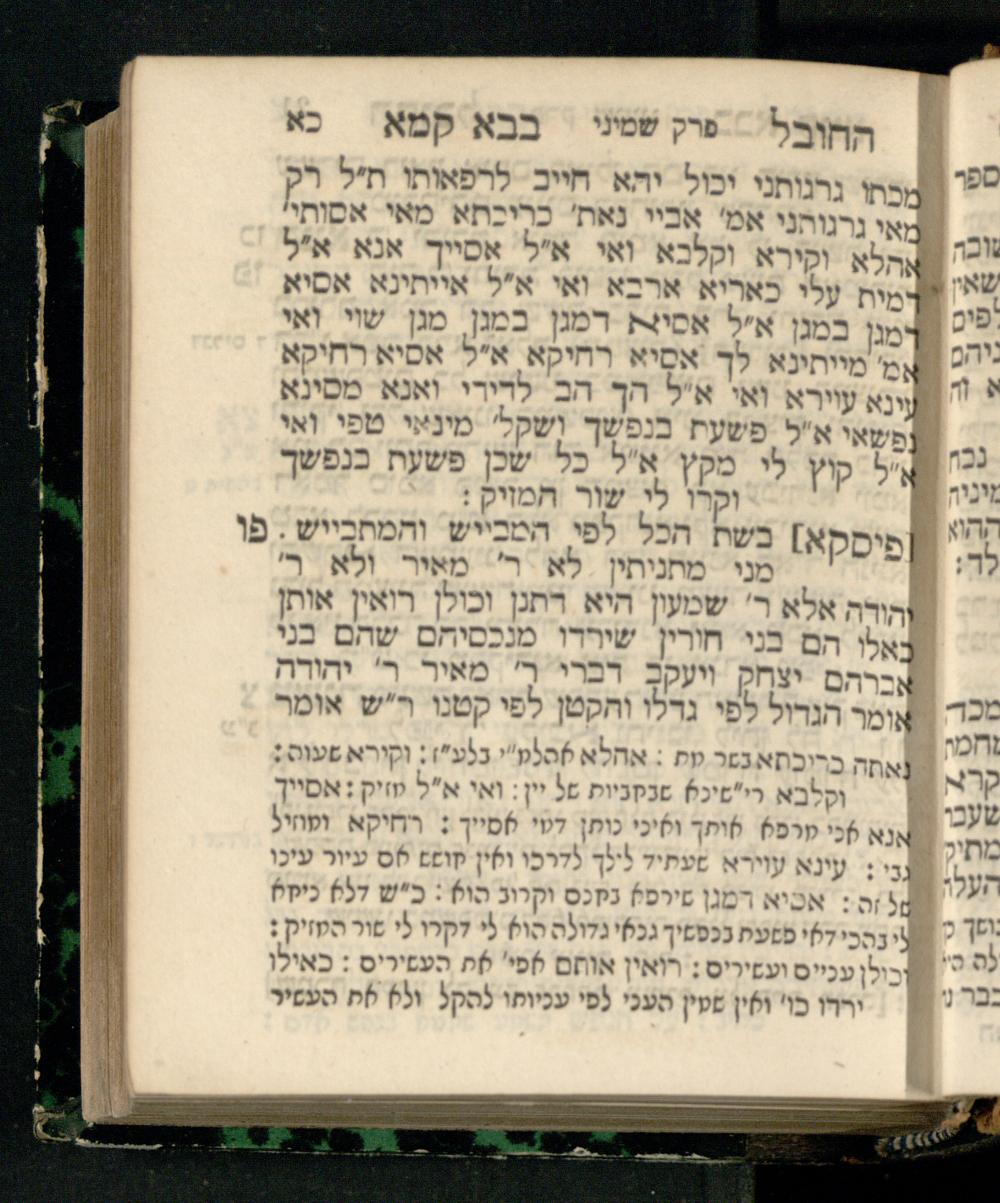 החובל פרק שמיני בבא קמא כא
מכתו גרגותני יכול יהא חייב לרפאותו ת״ל רק
מאי גרגותני אמ׳ אביי נאת׳ כריכתא מאי אסותי׳
אהלא וקירא וקלבא ואי א״ל אסייך אנא א״ל
דמית עלי כאריא ארבא ואי א״ל אייתינא אסיא
דמגן במגן א״ל אסיא דמגן במגן מגן שוי ואי
אמ׳ מייתינא לך אסיא רחיקא א״ל אסיא רחיקא
עינא עוירא ואי א״ל הך הב לדידי ואנא מסינא
נפשאי א״ל פשעת בנפשך ושקל׳ מינאי טפי ואי
א״ל קוץ לי מקץ א״ל כל שכן פשעת בנפשך
וקרו לי שור המזיק :
[פיסקא] בשת הכל לפי המבייש והמתבייש . פו
מני מתניתין לא ר׳ מאיר ולא ר׳
יהודה אלא ר׳ שמעון היא דתנן וכולן רואין אותן
כאלו הם בני חורין שירדו מנכסיהם שהם בני
אברהם יצחק ויעקב דברי ר׳ מאיר ר׳ יהודה
אומר הגדול לפי גדלו והקטן לפי קטנו ר״ש אומר
נאתה כריכתא בשר מת : אהלא אהלמ״י בלע״ז : וקירא שעוה :
וקלבא רי״שינא שבקביות של יין : ואי א״ל מזיק : אסייך
אנא אני מרפא אותך ואיני נותן דמי אסייך : רחיקא ומוזיל
גבי׳ : עינא עוירא שעתיד לילך לדרכו ואין חושש אם עיור עינו
של זה : אסיא דמגן שירפא בחנם וקרוב הוא : כ״ש דלא ניחא
לי בהכי דאי פשעת בנפשיך גנאי גדולה הוא לי דקרו לי שור המזיק :
וכולן עניים ועשירים : רואין אותם אפי׳ את העשירים : כאילו
ירדו כו׳ ואין שמין העני לפי עניותו להקל ולא את העשיר